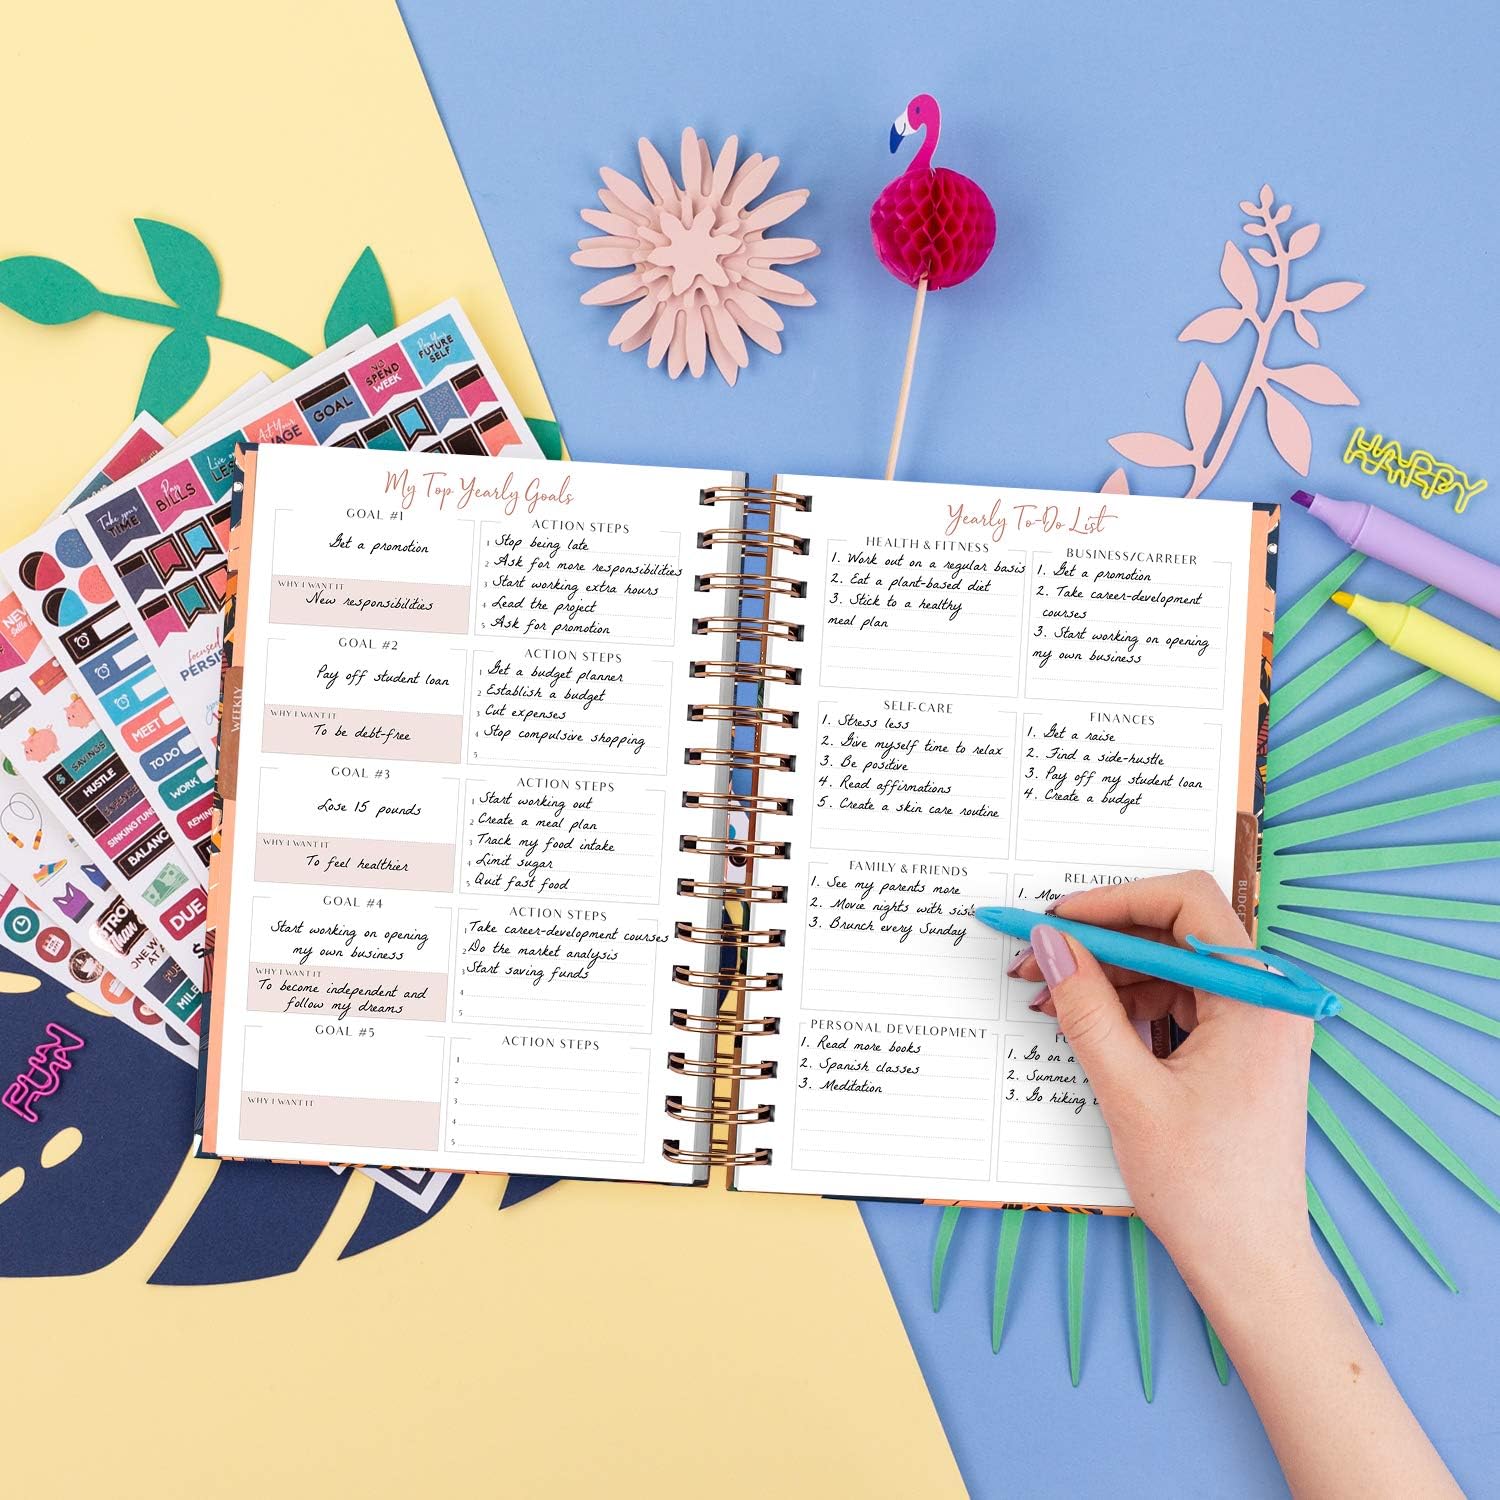 Pay Your
FUTURE
SELF
NO
SPEND
WEEK
GOAL
Pay
BILLS
Take your
TIME
focused
MEET
TO DO
WORK
SAVINGS
$
HUSTLE
EXPENSE
DUE
HAPPY
FUN
WEEKLY
My Top Yearly Goals
GOAL #1
Get a promotion
WHY I WANT IT
New responsibilities
ACTION STEPS
1 Stop being late
2 Ask for more responsibilities
3 Start working extra hours
4 Lead the project
5 Ask for promotion
GOAL #2
Pay off student loan
WHY I WANT IT
To be debt-free
ACTION STEPS
1 Get a budget planner
2 Establish a budget
3 Cut expenses
4 Stop compulsive shopping
5
GOAL #3
Lose 15 pounds
WHY I WANT IT
To feel healthier
ACTION STEPS
1 Start working out
2 Create a meal plan
3 Track my food intake
4 Limit sugar
5 Quit fast food
GOAL #4
Start working on opening
my own business
WHY I WANT IT
To become independent and
follow my dreams
ACTION STEPS
1 Take career-development courses
2 Do the market analysis
3 Start saving funds
4
5
GOAL #5
WHY I WANT IT
ACTION STEPS
1
2
3
4
5
Yearly To-Do List
HEALTH & FITNESS
1. Work out on a regular basis
2. Eat a plant-based diet
3. Stick to a healthy
meal plan
BUSINESS/CARREER
1. Get a promotion
2. Take career-development
courses
3. Start working on opening
my own business
SELF-CARE
1. Stress less
2. Give myself time to relax
3. Be positive
4. Read affirmations
5. Create a skin care routine
FINANCES
1. Get a raise
2. Find a side-hustle
3. Pay off my student loan
4. Create a budget
FAMILY & FRIENDS
1. See my parents more
2. Movie nights with
3. Brunch every Sunday
1.
PERSONAL DEVELOPMENT
1. Read more books
2. Spanish classes
3. Meditation
1. Go on a
2. Summer
3. Go hiking